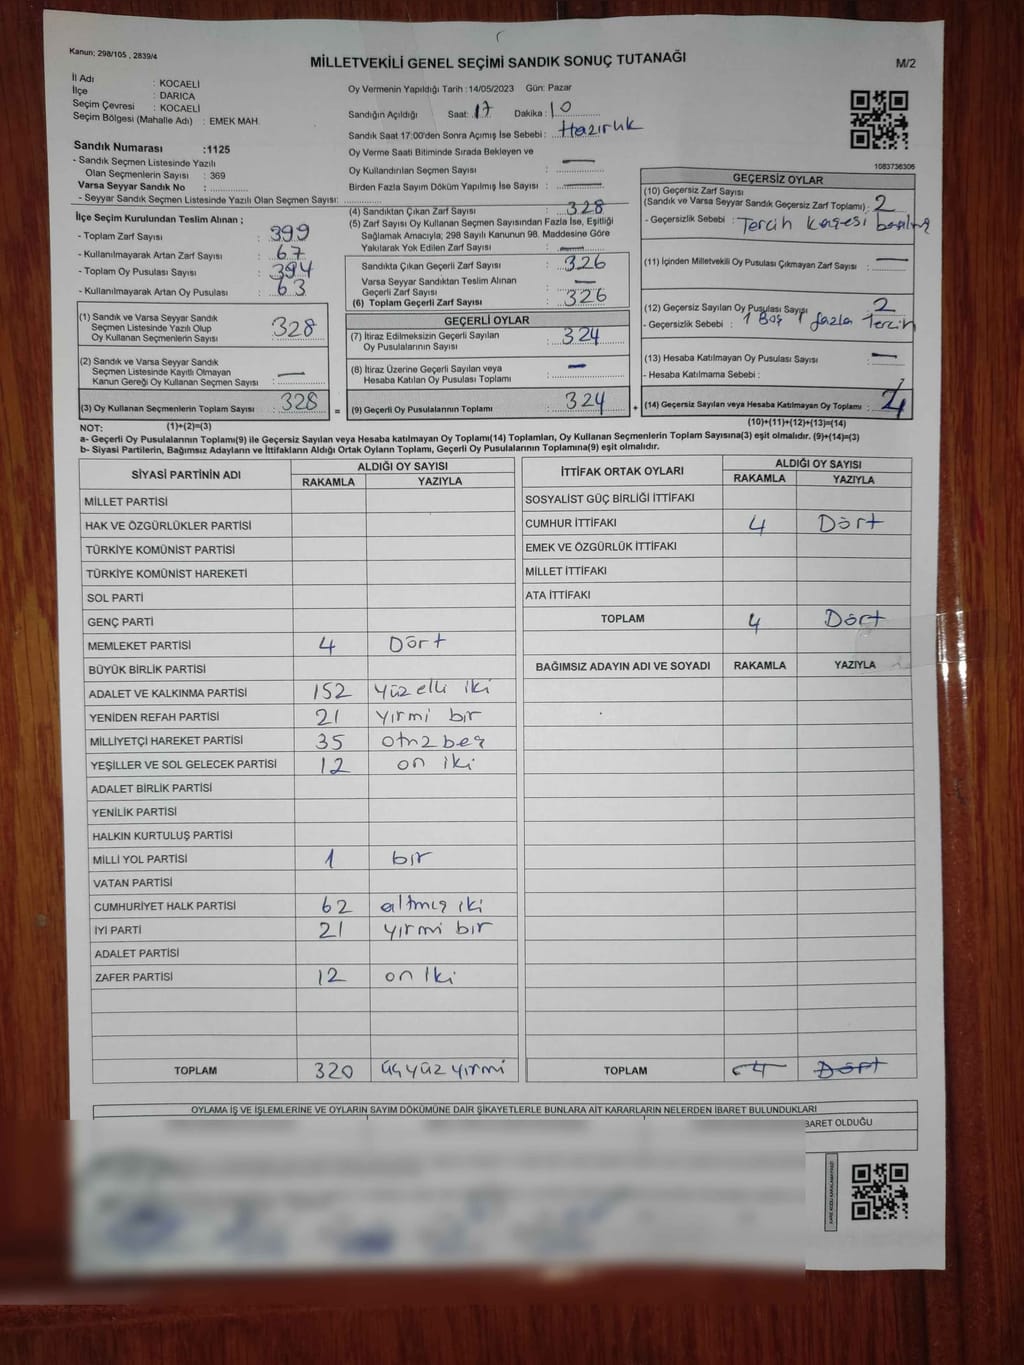 Kanun; 298/105 , 2839/4
MİLLETVEKİLİ GENEL SEÇİMİ SANDIK SONUÇ TUTANAĞI
M/2
İl Adı : KOCAELİ
İlçe : DARICA
Seçim Çevresi : KOCAELİ
Seçim Bölgesi (Mahalle Adı) : EMEK MAH.
Sandık Numarası :1125
- Sandık Seçmen Listesinde Yazılı
Olan Seçmenlerin Sayısı : 369
Varsa Seyyar Sandık No : ............
- Seyyar Sandık Seçmen Listesinde Yazılı Olan Seçmen Sayısı: ............
Oy Vermenin Yapıldığı Tarih :14/05/2023 Gün: Pazar
Sandığın Açıldığı Saat: 17 Dakika : 10
Sandık Saat 17:00'den Sonra Açımış İse Sebebi : Hazırlık
Oy Verme Saati Bitiminde Sırada Bekleyen ve
Oy Kullandırılan Seçmen Sayısı : —
Birden Fazla Sayım Döküm Yapılmış İse Sayısı : —
1083736306
İlçe Seçim Kurulundan Teslim Alınan ;
- Toplam Zarf Sayısı : 399
- Kullanılmayarak Artan Zarf Sayısı : 67
- Toplam Oy Pusulası Sayısı : 394
- Kullanılmayarak Artan Oy Pusulası : 63
(1) Sandık ve Varsa Seyyar Sandık
Seçmen Listesinde Yazılı Olup
Oy Kullanan Seçmenlerin Sayısı : 328
(2) Sandık ve Varsa Seyyar Sandık
Seçmen Listesinde Kayıtlı Olmayan
Kanun Gereği Oy Kullanan Seçmen Sayısı : —
(3) Oy Kullanan Seçmenlerin Toplam Sayısı : 328
(4) Sandıktan Çıkan Zarf Sayısı : 328
(5) Zarf Sayısı Oy Kullanan Seçmen Sayısından Fazla İse, Eşitliği
Sağlamak Amacıyla; 298 Sayılı Kanunun 98. Maddesine Göre
Yakılarak Yok Edilen Zarf Sayısı : —
Sandıkta Çıkan Geçerli Zarf Sayısı : 326
Varsa Seyyar Sandıktan Teslim Alınan
Geçerli Zarf Sayısı : —
(6) Toplam Geçerli Zarf Sayısı : 326
GEÇERLİ OYLAR
(7) İtiraz Edilmeksizin Geçerli Sayılan
Oy Pusulalarının Sayısı : 324
(8) İtiraz Üzerine Geçerli Sayılan veya
Hesaba Katılan Oy Pusulası Toplamı : —
= (9) Geçerli Oy Pusulalarının Toplamı : 324 +
GEÇERSİZ OYLAR
(10) Geçersiz Zarf Sayısı
(Sandık ve Varsa Seyyar Sandık Geçersiz Zarf Toplamı) : 2
- Geçersizlik Sebebi : Tercih Kaşesi basılmış
(11) İçinden Milletvekili Oy Pusulası Çıkmayan Zarf Sayısı : —
(12) Geçersiz Sayılan Oy Pusulası Sayısı : 2
- Geçersizlik Sebebi : 1 Boş 1 fazla Tercih
(13) Hesaba Katılmayan Oy Pusulası Sayısı : —
- Hesaba Katılmama Sebebi :
(14) Geçersiz Sayılan veya Hesaba Katılmayan Oy Toplamı : 4
NOT: (1)+(2)=(3) (10)+(11)+(12)+(13)=(14)
a- Geçerli Oy Pusulalarının Toplamı(9) ile Geçersiz Sayılan veya Hesaba katılmayan Oy Toplamı(14) Toplamları, Oy Kullanan Seçmenlerin Toplam Sayısına(3) eşit olmalıdır. (9)+(14)=(3)
b- Siyasi Partilerin, Bağımsız Adayların ve İttifakların Aldığı Ortak Oyların Toplamı, Geçerli Oy Pusulalarının Toplamına(9) eşit olmalıdır.
SİYASİ PARTİNİN ADI ALDIĞI OY SAYISI
RAKAMLA YAZIYLA
MİLLET PARTİSİ
HAK VE ÖZGÜRLÜKLER PARTİSİ
TÜRKİYE KOMÜNİST PARTİSİ
TÜRKİYE KOMÜNİST HAREKETİ
SOL PARTİ
GENÇ PARTİ
MEMLEKET PARTİSİ 4 Dört
BÜYÜK BİRLİK PARTİSİ
ADALET VE KALKINMA PARTİSİ 152 yüz elli iki
YENİDEN REFAH PARTİSİ 21 yirmi bir
MİLLİYETÇİ HAREKET PARTİSİ 35 otuz beş
YEŞİLLER VE SOL GELECEK PARTİSİ 12 on iki
ADALET BİRLİK PARTİSİ
YENİLİK PARTİSİ
HALKIN KURTULUŞ PARTİSİ
MİLLİ YOL PARTİSİ 1 bir
VATAN PARTİSİ
CUMHURİYET HALK PARTİSİ 62 altmış iki
İYİ PARTİ 21 yirmi bir
ADALET PARTİSİ
ZAFER PARTİSİ 12 on iki
TOPLAM 320 üçyüz yirmi
İTTİFAK ORTAK OYLARI ALDIĞI OY SAYISI
RAKAMLA YAZIYLA
SOSYALİST GÜÇ BİRLİĞİ İTTİFAKI
CUMHUR İTTİFAKI 4 Dört
EMEK VE ÖZGÜRLÜK İTTİFAKI
MİLLET İTTİFAKI
ATA İTTİFAKI
TOPLAM 4 Dört
BAĞIMSIZ ADAYIN ADI VE SOYADI RAKAMLA YAZIYLA
TOPLAM 4 Dört
OYLAMA İŞ VE İŞLEMLERİNE VE OYLARIN SAYIM DÖKÜMÜNE DAİR ŞİKAYETLERLE BUNLARA AİT KARARLARIN NELERDEN İBARET BULUNDUKLARI
BARET OLDUĞU